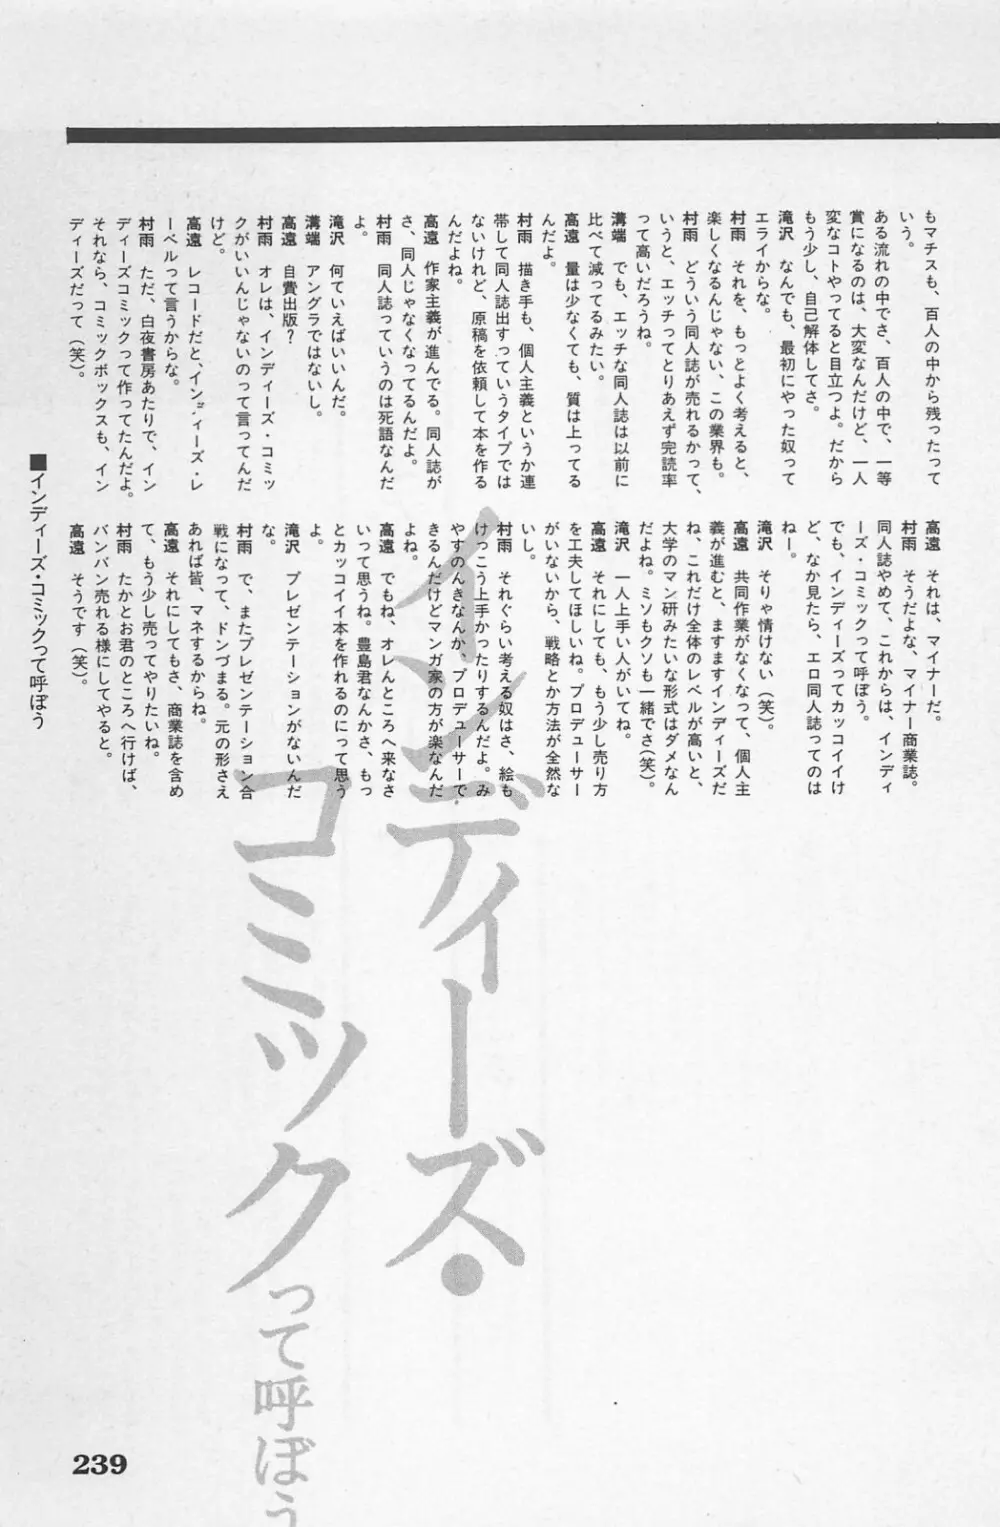 もマチスも、百人の中から残ったって
いう。
ある流れの中でさ、百人の中で、一等
賞になるのは、大変なんだけど、一人
変なコトやってると目立つよ。だから
もう少し、自己解体してさ。
滝沢　なんでも、最初にやった奴って
エライからな。
村雨　それを、もっとよく考えると、
楽しくなるんじゃない、この業界も。
村雨　どういう同人誌が売れるかって、
いうと、エッチってとりあえず完読率
って高いだろうね。
溝端　でも、エッチな同人誌は以前に
比べて減ってるみたい。
高遠　量は少なくても、質は上ってる
んだよ。
村雨　描き手も、個人主義というか連
帯して同人誌出すっていうタイプでは
ないけれど、原稿を依頼して本を作る
んだよね。
高遠　作家主義が進んでる。同人誌が
さ、同人じゃなくなってるんだよ。
村雨　同人誌っていうのは死語なんだ
よ。
滝沢　何ていえばいいんだ。
溝端　アングラではないし。
高遠　自費出版？
村雨　オレは、インディーズ・コミッ
クがいいんじゃないのって言ってんだ
けど。
高遠　レコードだと、インディーズ・レ
ーベルって言うからな。
村雨　ただ、白夜書房あたりで、イン
ディーズコミックって作ってたんだよ。
それなら、コミックボックスも、イン
ディーズだって（笑）。
高遠　それは、マイナーだ。
村雨　そうだよな、マイナー商業誌。
同人誌やめて、これからは、インディ
ーズ・コミックって呼ぼう。
でも、インディーズってカッコイイけ
ど、なか見たら、エロ同人誌ってのは
ねー。
滝沢　そりゃ情けない（笑）。
高遠　共同作業がなくなって、個人主
義が進むと、ますますインディーズだ
ね、これだけ全体のレベルが高いと、
大学のマン研みたいな形式はダメなん
だよね。ミソもクソも一緒でさ（笑）。
滝沢　一人上手い人がいてね。
高遠　それにしても、もう少し売り方
を工夫してほしいね。プロデューサー
がいないから、戦略とか方法が全然な
いし。
村雨　それぐらい考える奴はさ、絵も
けっこう上手かったりするんだよ。み
やすのんきなんか、プロデューサーで
きるんだけどマンガ家の方が楽なんだ
よね。
高遠　でもね、オレんところへ来なさ
いって思うね。豊島君なんかさ、もっ
とカッコイイ本を作れるのにって思う
よ。
滝沢　プレゼンテーションがないんだ
な。
村雨　で、またプレゼンテーション合
戦になって、ドンづまる。元の形さえ
あれば皆、マネするからね。
高遠　それにしてもさ、商業誌を含め
て、もう少し売ってやりたいね。
村雨　たかとお君のところへ行けば、
バンバン売れる様にしてやると。
高遠　そうです（笑）。
インディーズ・
コミックって呼ぼう
■インディーズ・コミックって呼ぼう
239